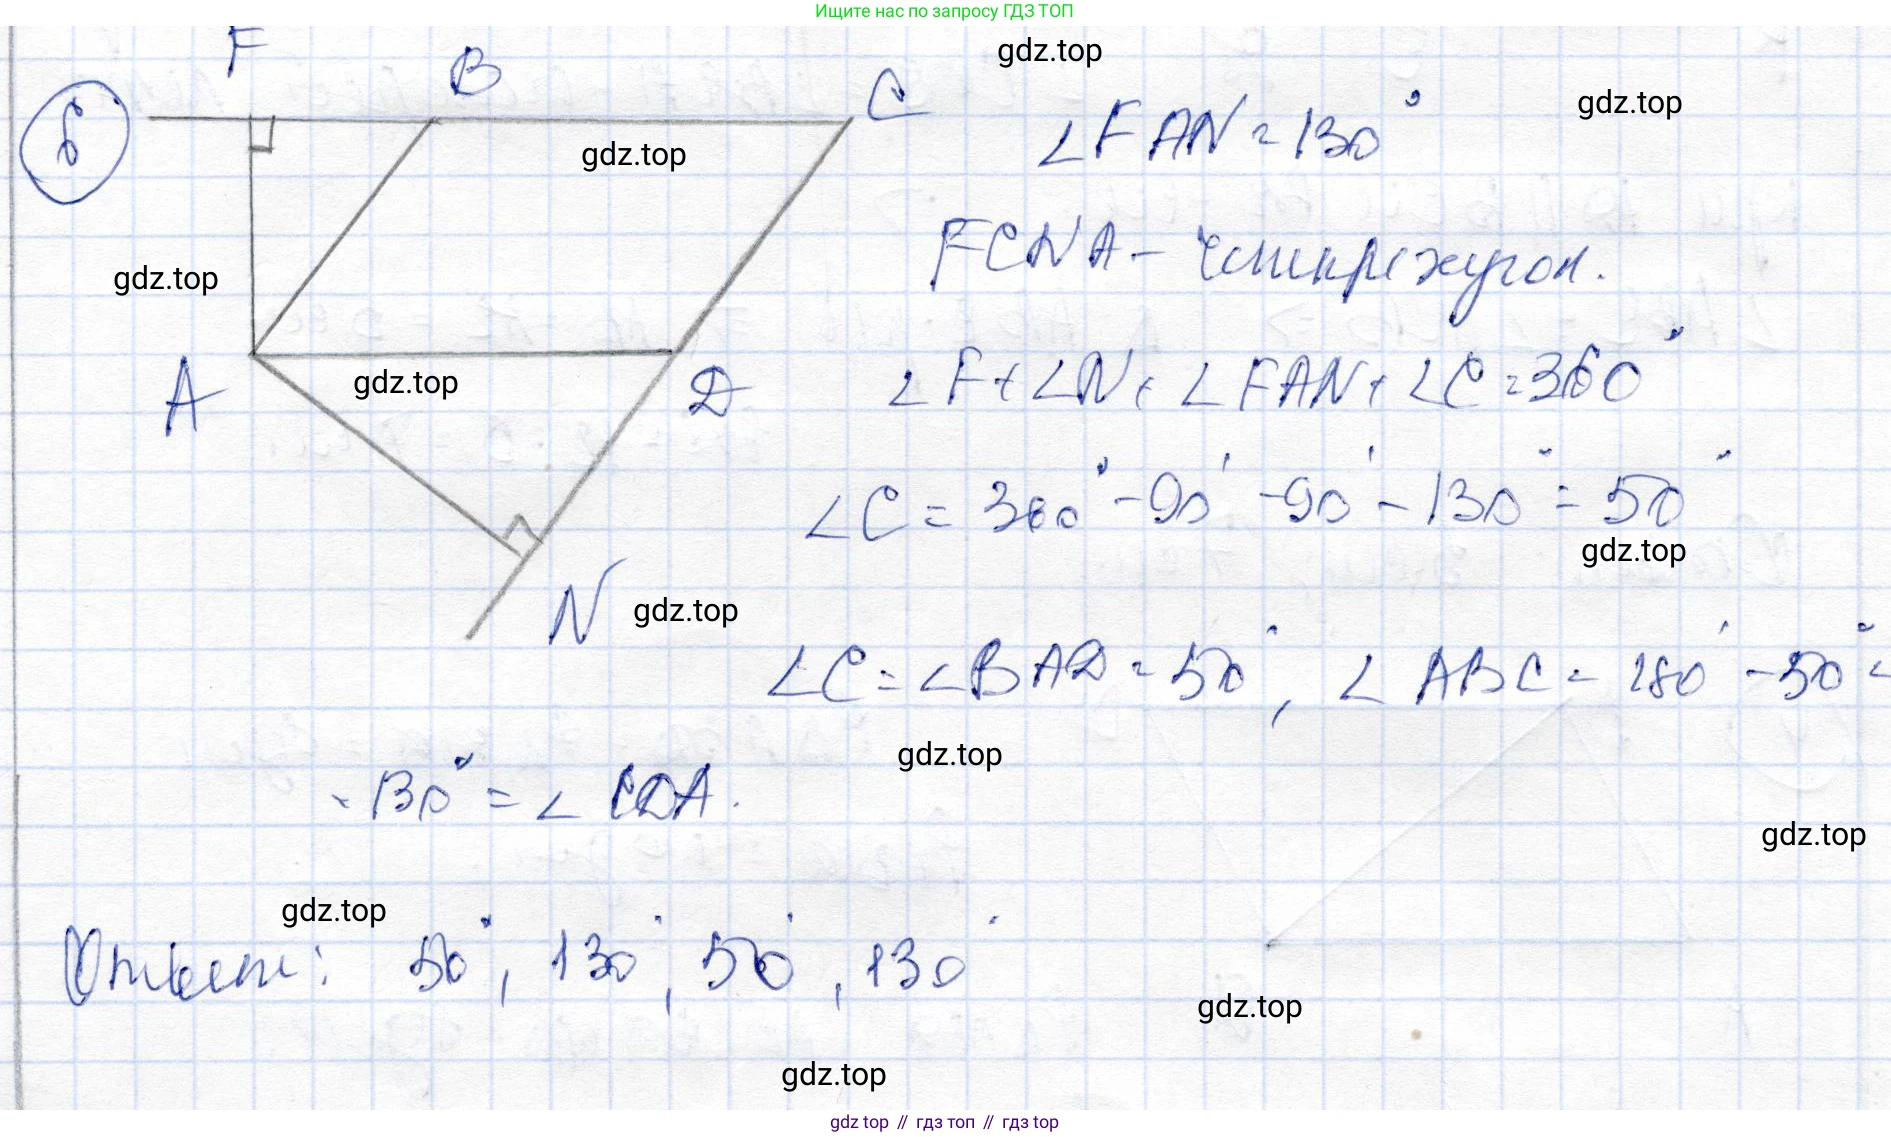 Ищите нас по запросу ГДЗ ТОП
б
F
B
C
A
D
N
∠FAN = 130°
FCNA - четырехугол.
∠F + ∠N + ∠FAN + ∠C = 360°
∠C = 360° - 90° - 90° - 130° = 50°
∠C = ∠BAD = 50°, ∠ABC = 180° - 50° =
= 130° = ∠CDA.
Ответ: 50°, 130°, 50°, 130°
gdz.top
gdz.top
gdz.top
gdz.top
gdz.top
gdz.top
gdz.top
gdz.top
gdz.top
gdz.top
gdz.top
gdz.top
gdz top // гдз топ // гдз top